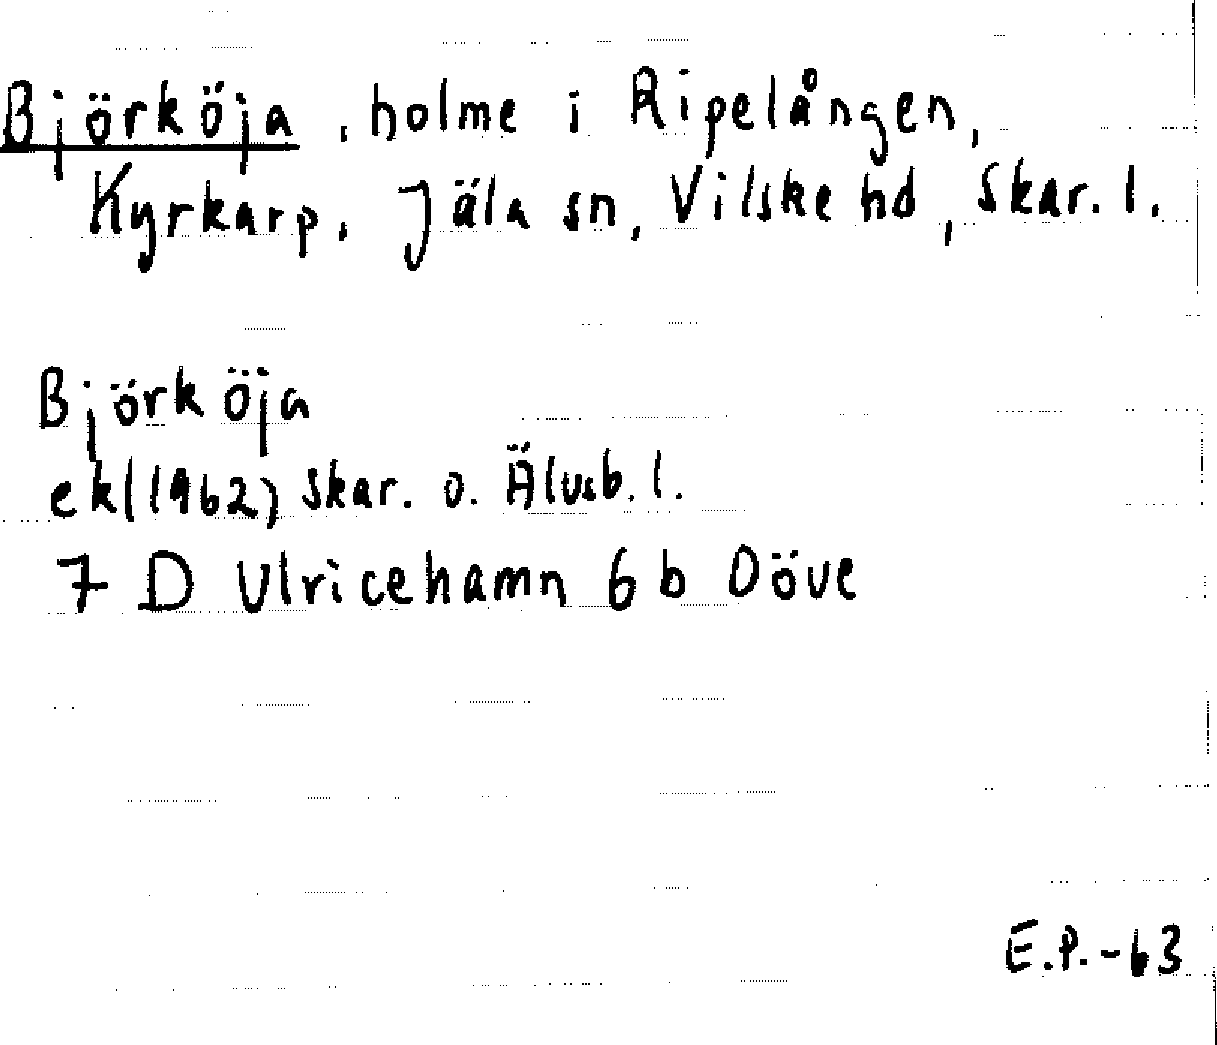 Björköja, holme i Ripelången,
Kyrkarp, Jäla sn, Vilske hd, Skar. l.
Björköja
ek(1962) Skar. o. Älvsb. l.
7 D Ulricehamn 6 b Döve
E.P.-63